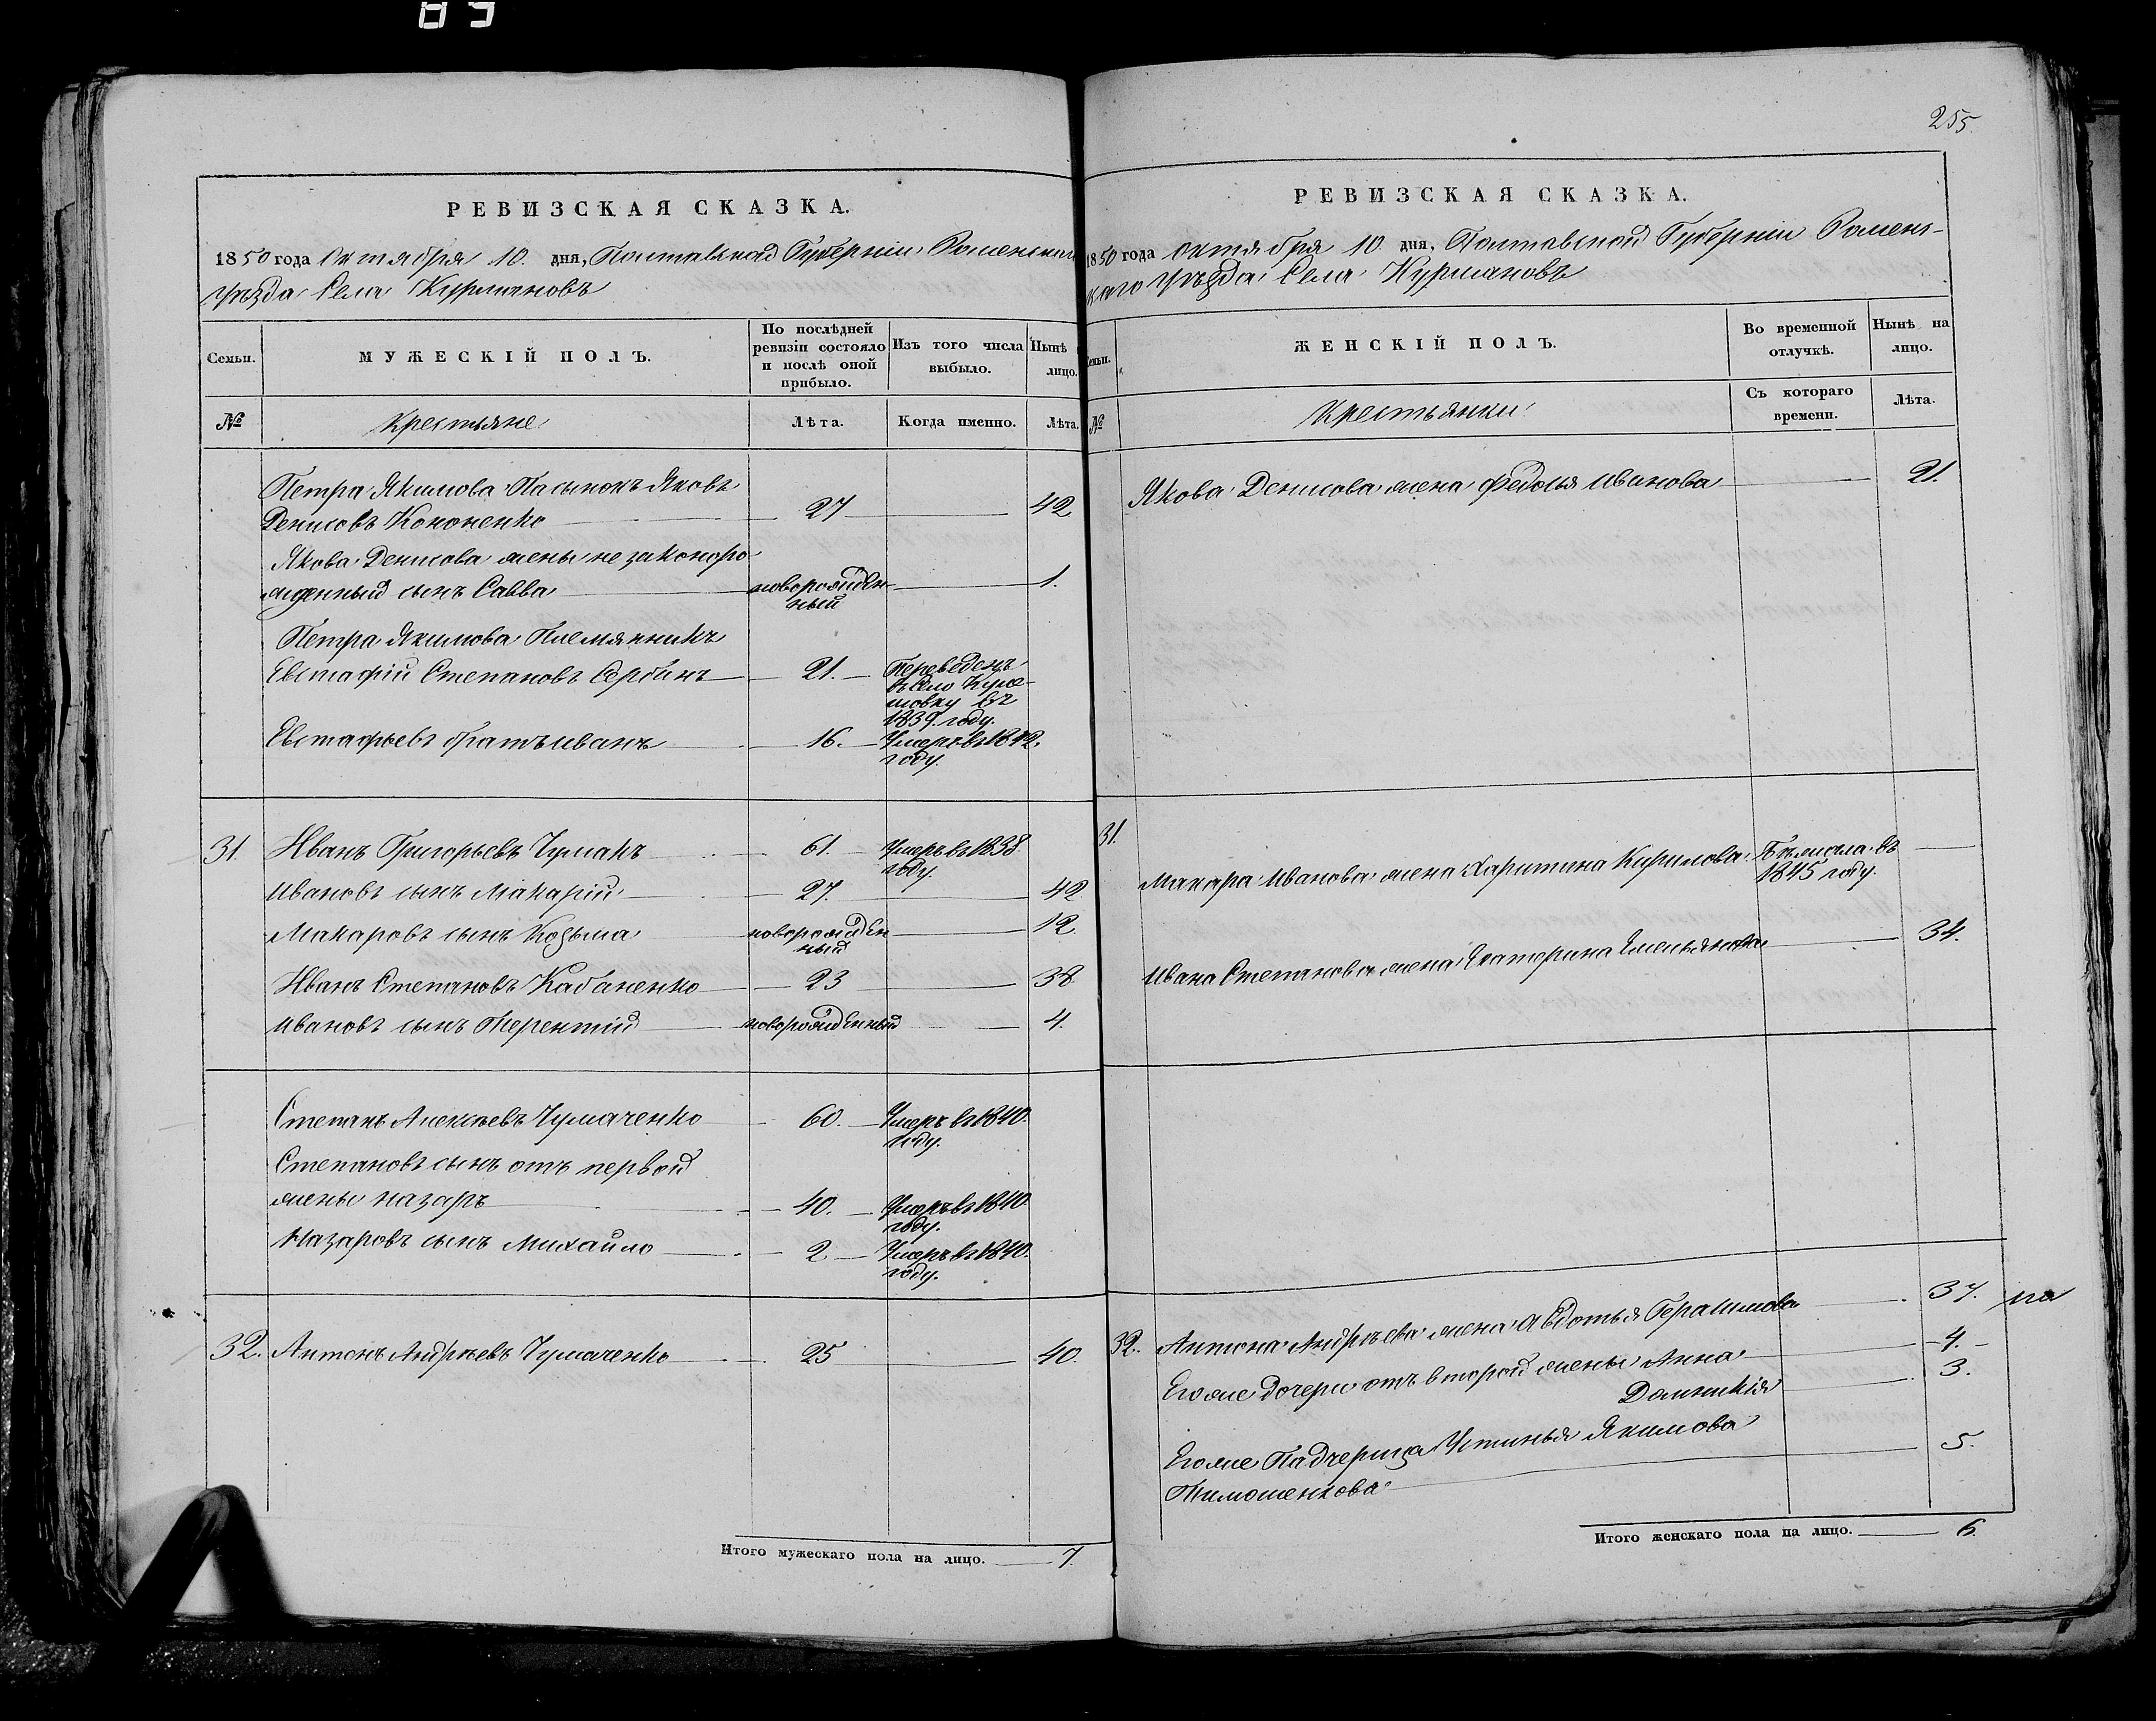 89
РЕВИЗСКАЯ СКАЗКА.
1850 года Октября 10. дня, Полтавской Губерніи, Роменскаго
уѣзда Села Курмановъ
Семьи.
МУЖЕСКІЙ ПОЛЪ.
По послѣдней
ревизіи состояло
и послѣ оной
прибыло.
Изъ того числа
выбыло.
Нынѣ
лицо.
№
Крестьяне
Лѣта.
Когда именно.
Лѣта.
Петра Якимова Пасынокъ Яковъ
Денисовъ Кононенко 27 42
Якова Денисова жены незаконоро
жденный сынъ Савва новорожден 1.
ный
Петра Якимова Племянникъ
Евстафій Степановъ Сербинъ 21. Переведенъ
въ село
въ
1839. году.
Евстафьевъ братъ иванъ 16. Умеръ въ 1842.
году.
31. Иванъ Григорьевъ Чумакъ 61. Умеръ въ 1838
году.
ивановъ сынъ Макарій 27. 42
Макаровъ сынъ Козьма новорожден 12.
ный
Иванъ Степановъ Кабаненко 23 38
ивановъ сынъ Терентій новорожденный 4.
Степанъ Алексѣевъ Чумаченко 60. Умеръ въ 1840.
году.
Степановъ сынъ отъ первой
жены назаръ 40. Умеръ въ 1840
году.
Назаровъ сынъ Михайло 2 Умеръ въ 1840.
году.
32. Антонъ Андрѣевъ Чумаченко 25 40.
Итого мужескаго пола на лицо. 7.
255.
РЕВИЗСКАЯ СКАЗКА.
1850 года октября 10. дня, Полтавской Губерніи Роменс-
каго уѣзда Села Курмановъ
Семьи.
ЖЕНСКІЙ ПОЛЪ.
Во временной
отлучкѣ.
Нынѣ на
лицо.
№
Крестьянки
Съ котораго
времени.
Лѣта.
Якова Денисова жена Федосья иванова 21.
31.
Макара Иванова жена Харитина Кирилова Бѣжала въ
1845 году.
Ивана Степанова жена Екатерина Емельянова 34.
32. Антона Андрѣева жена Авдотья Герасимова 37.
Егоже дочери отъ второй жены Анна 4.
Домникія 3.
Егоже Падчерица Устинья Якимова
Тимошенкова 5.
Итого женскаго пола на лицо. 6.